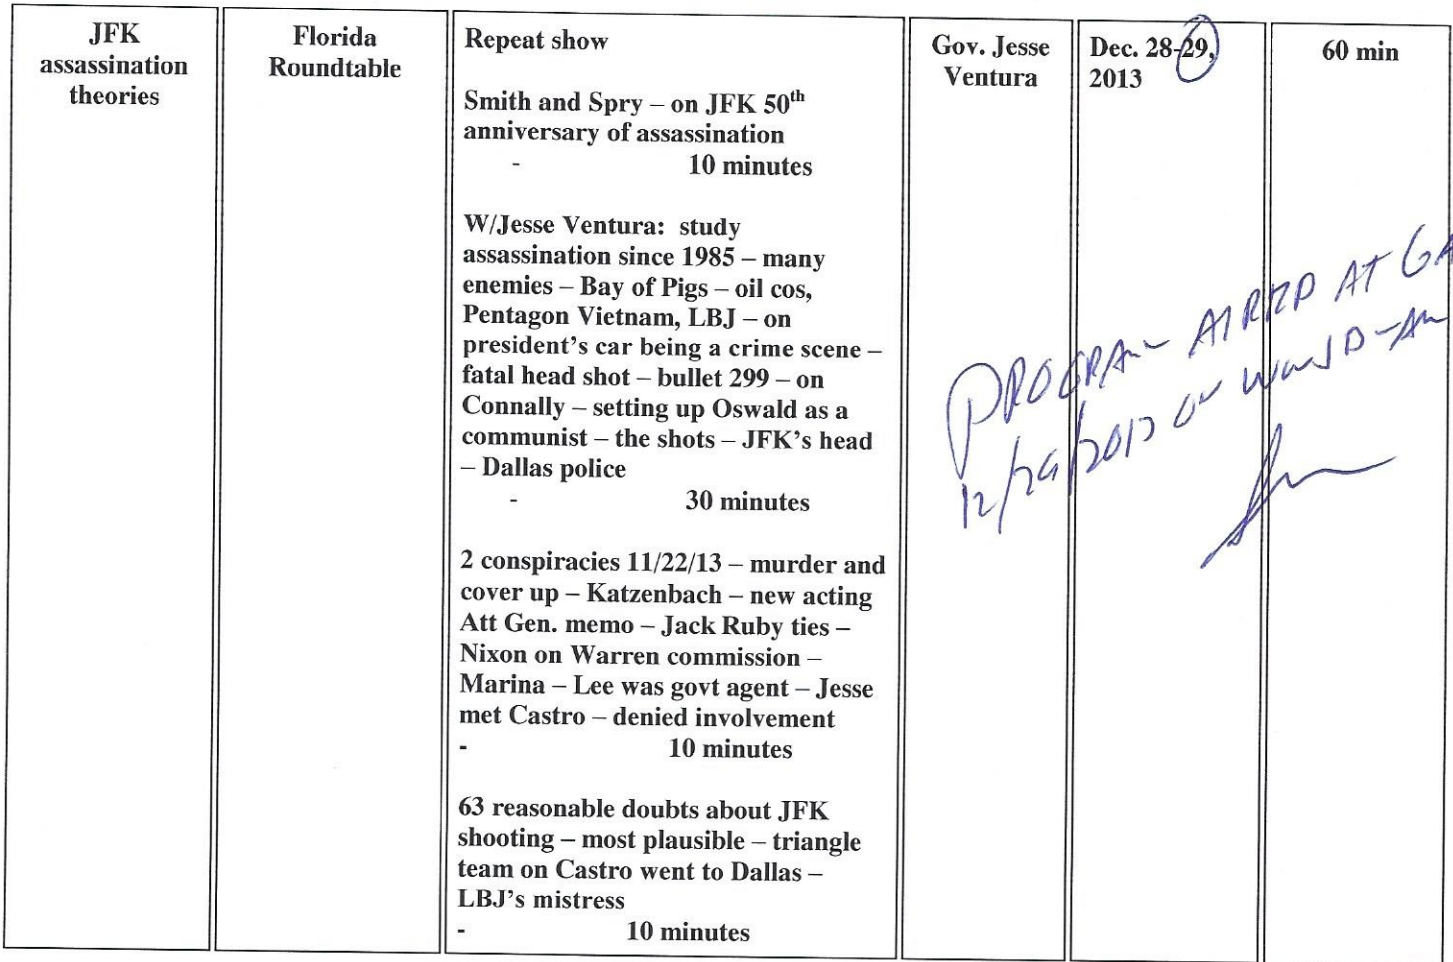 JFK
assassination
theories
Florida
Roundtable
Repeat show
Smith and Spry – on JFK 50th
anniversary of assassination
- 10 minutes
W/Jesse Ventura: study
assassination since 1985 – many
enemies – Bay of Pigs – oil cos,
Pentagon Vietnam, LBJ – on
president's car being a crime scene –
fatal head shot – bullet 299 – on
Connally – setting up Oswald as a
communist – the shots – JFK's head
– Dallas police
- 30 minutes
2 conspiracies 11/22/13 – murder and
cover up – Katzenbach – new acting
Att Gen. memo – Jack Ruby ties –
Nixon on Warren commission –
Marina – Lee was govt agent – Jesse
met Castro – denied involvement
- 10 minutes
63 reasonable doubts about JFK
shooting – most plausible – triangle
team on Castro went to Dallas –
LBJ's mistress
- 10 minutes
Gov. Jesse
Ventura
Dec. 28-29,
2013
60 min
PROGRAM AIRED AT 6A
12/29/2013 ON